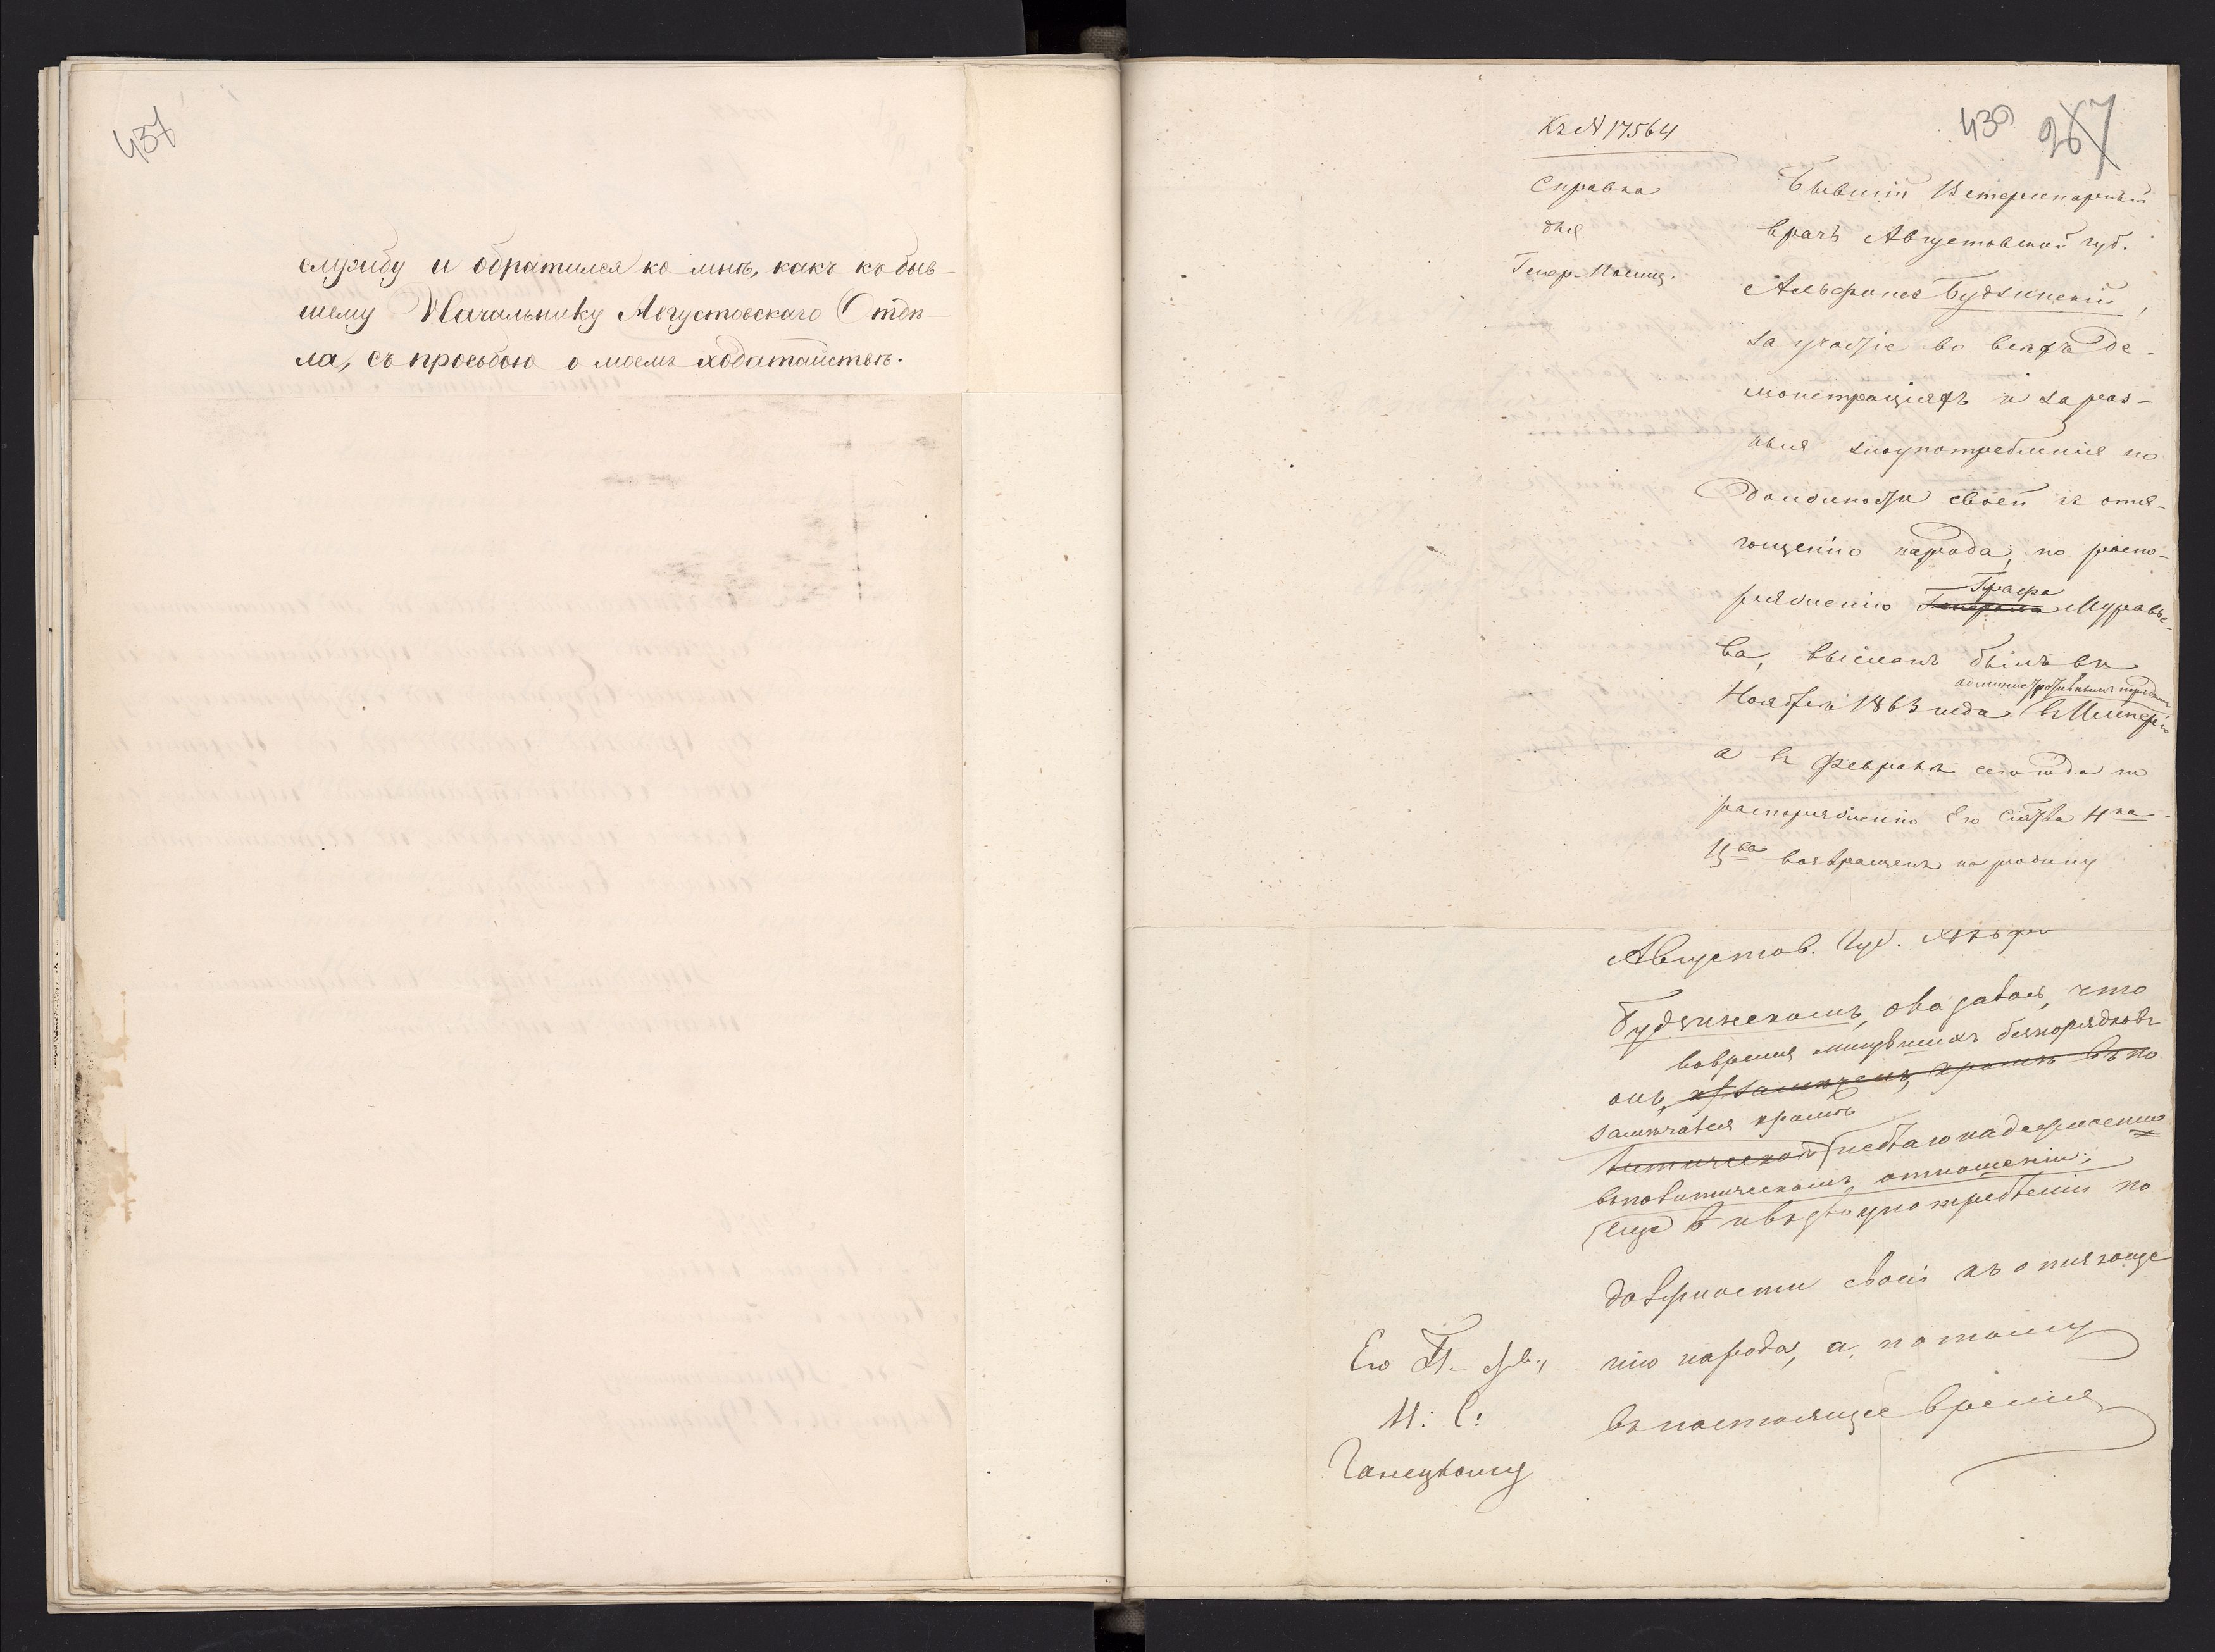 437
службу и обратился ко мнѣ, какъ къ быв-
шему Начальнику Августовскаго Отдѣ-
ла, съ просьбою о моемъ ходатайствѣ.
439 267
Къ № 17564
Справка
для
Генер. Полиц.
Бывшій Ветеринарный
врачъ Августовской губ.
Альфонсъ Будзинскій,
за участіе во всѣхъ де-
монстраціяхъ и за раз-
ныя злоупотребленія по
должности своей къ отя-
гощенію народа, по распо-
ряженію Генерала Графа Муравье-
ва, высланъ былъ въ
Ноябрѣ 1863 года административнымъ порядкомъ въ Имперію
а въ Февралѣ сего года по
распоряженію Его Сіятва
возвращенъ на родину
Августов. Губ.
Будзинскомъ, оказалось, что
во время минувшихъ безпорядковъ
онъ
замѣчался кромѣ
неблагонадежности
въ политическомъ отношеніи,
еще въ злоупотребленіи по
должности своей къ отягоще
нію народа, а потому
въ настоящее время
Его П-ству
И. С.
Ганецкому